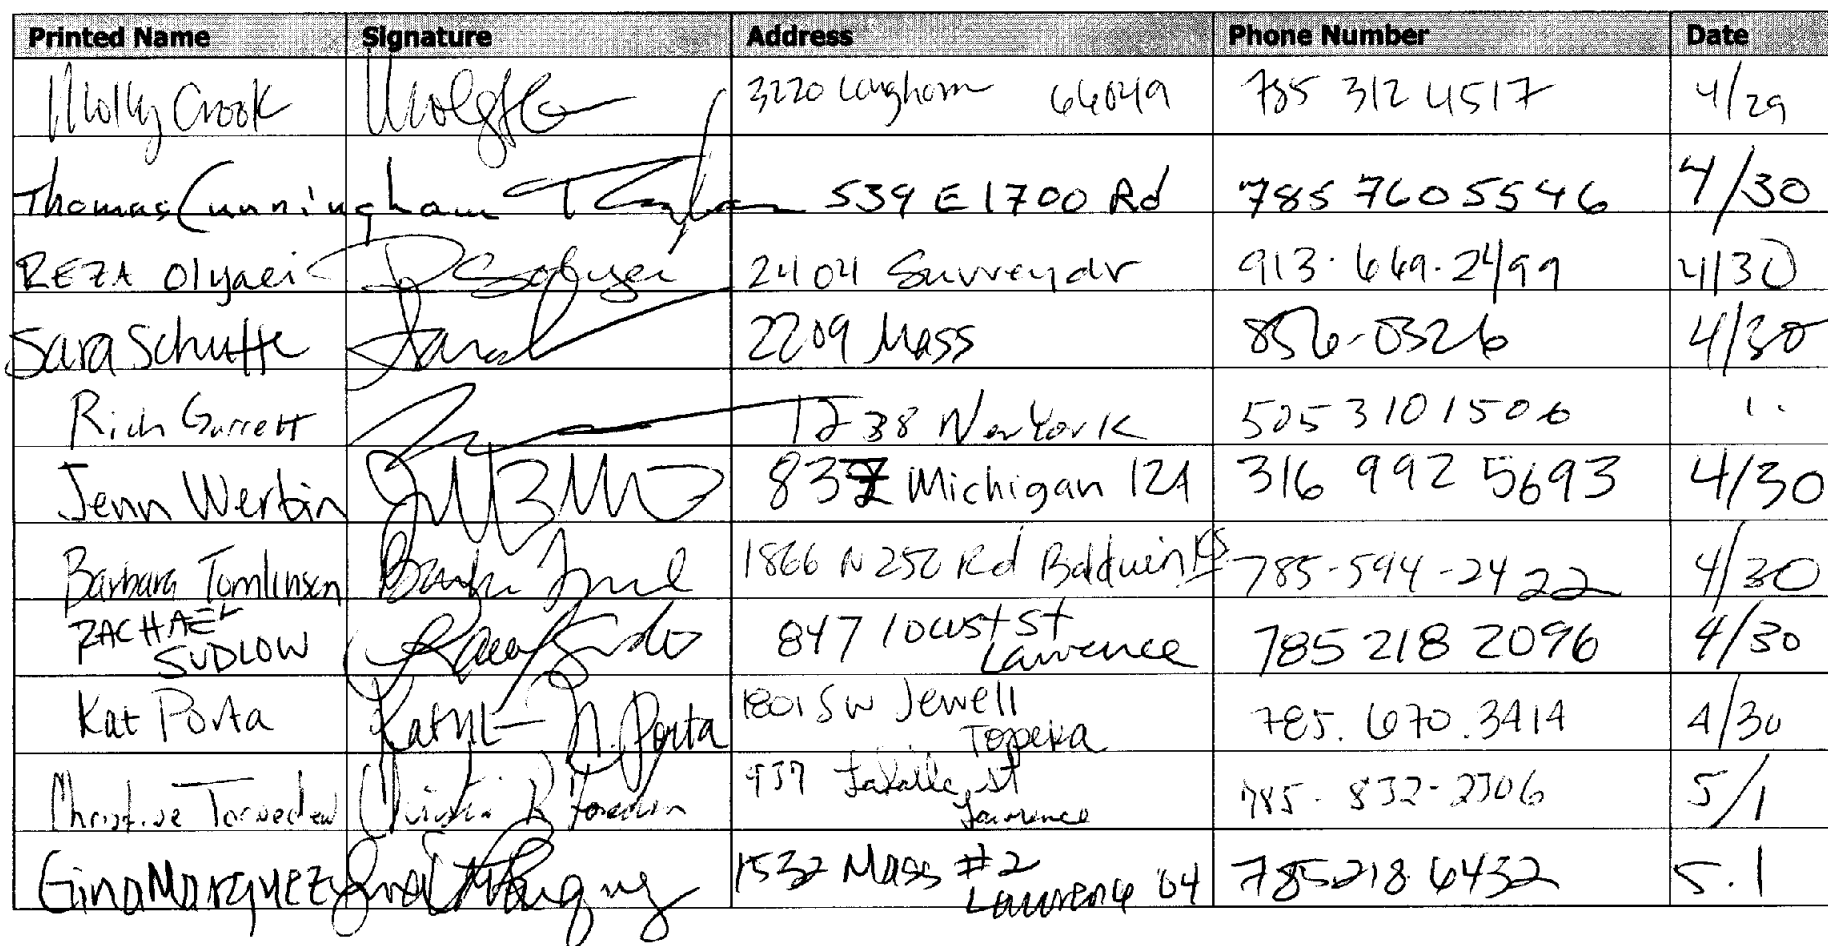 Printed Name Signature Address Phone Number Date
Molly Crook 3220 Longhorn 66049 785 312 4517 4/29
Thomas Cunningham 539 E 1700 Rd 785 760 5546 4/30
REZA Olyaei 2404 Surrey dr 913.669.2499 4/30
Sara Schutte 2209 Mass 856-0326 4/30
Rich Garrett 1238 New York 505 310 1506
Jenn Werbin Michigan 124 316 992 5693 4/30
Barbara Tomlinson 1866 N 250 Rd Baldwin KS 785-594-2422 4/30
ZACHAEL
SUDLOW 847 locust st
Lawrence 785 218 2096 4/30
Kat Porta Porta 1801 SW Jewell
Topeka 785.670.3414 4/30
Christine Torneden 937 St
Lawrence 785-832-2306 5/1
Gina Marquez 1532 Mass #2
Lawrence 785 218 6432 5.1